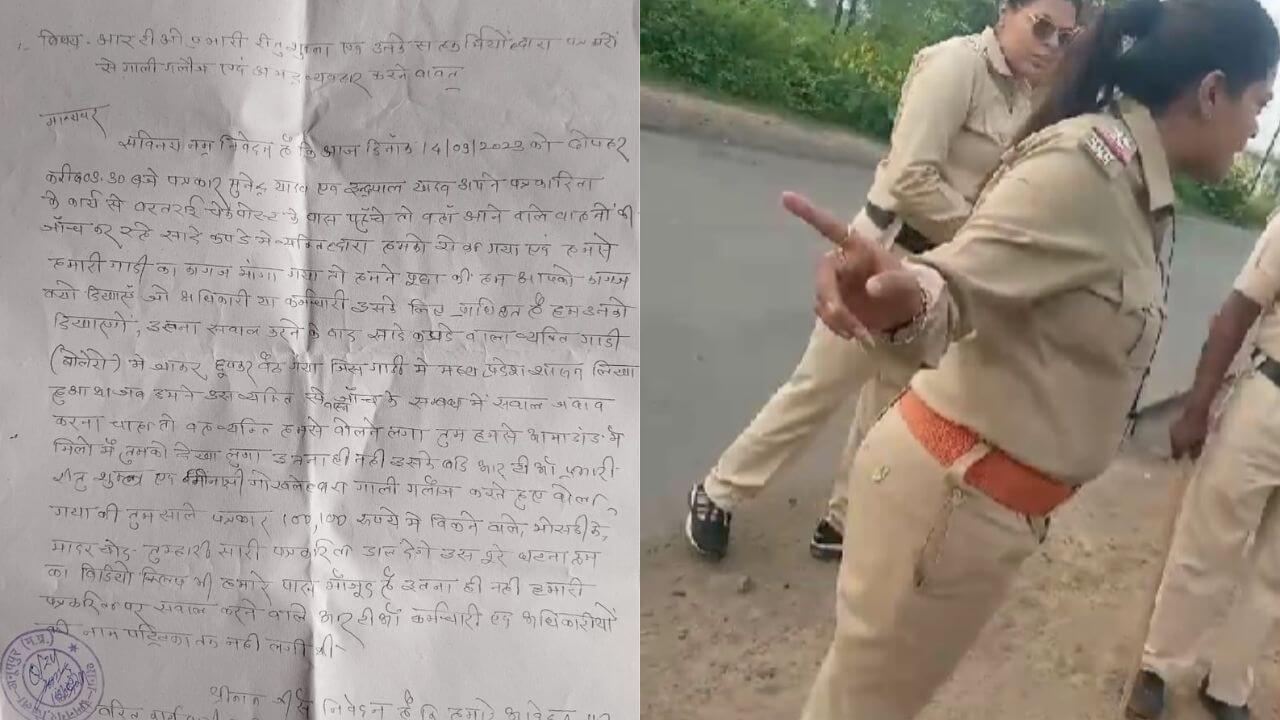 विषय- आर टी ओ प्रभारी रितु शुक्ला एवं उनके सहकर्मियों द्वारा पत्रकारों
से गाली गलौज एवं अभद्र व्यवहार करने बावत्
मान्यवर
सविनय नम्र निवेदन है कि आज दिनाँक 14/09/2022 को दोपहर
करीब 03:30 बजे पत्रकार मुनेन्द्र यादव एवं इन्द्रपाल यादव अपने पत्रकारिता
के कार्य से वरतराई चेकपोस्ट के पास पहुँचे तो वहाँ आने वाले वाहनों की
जाँच कर रहे सादे कपडे मे व्यक्ति द्वारा हमको रोका गया एवं हमसे
हमारी गाडी का कागज मांगा गया तो हमने पूछा की हम आपको कागज
क्यों दिखाएँ जो अधिकारी या कर्मचारी उसके लिए अधिकृत है हम उनको
दिखाएगें, इतना सवाल करने के बाद सादे कपडे वाला व्यक्ति गाडी
(बोलेरो) मे जाकर छुपकर बैठ गया जिस गाडी मे मध्य प्रदेश शासन लिखा
हुआ था जब हमने उस व्यक्ति से जाँच के सम्बन्ध में सवाल जवाब
करना चाहा तो वह व्यक्ति हमसे बोलने लगा तुम हमसे आमाडांड मे
मिलो मैं तुमको देख लुगा इतना ही नही उसके बाद आर टी ओ प्रभारी
रितु शुक्ला एवं मीनाक्षी गोखले द्वारा गाली गलौज करते हुए बोला
गया की तुम साले पत्रकार 100,100 रुपये मे बिकने वाले, भोसडी के,
मादर चोद- तुम्हारी सारी पत्रकारिता डाल देगे उस पूरे घटना क्रम
का विडियो क्लिप भी हमारे पास मौजूद है इतना ही नही हमारी
पत्रकारिता पर सवाल करने वाले आर टी ओ कर्मचारी एवं अधिकारीयों
की नाम पट्टिका तक नही लगी थी-
श्रीमान से निवेदन है कि हमारे आवेदन पर